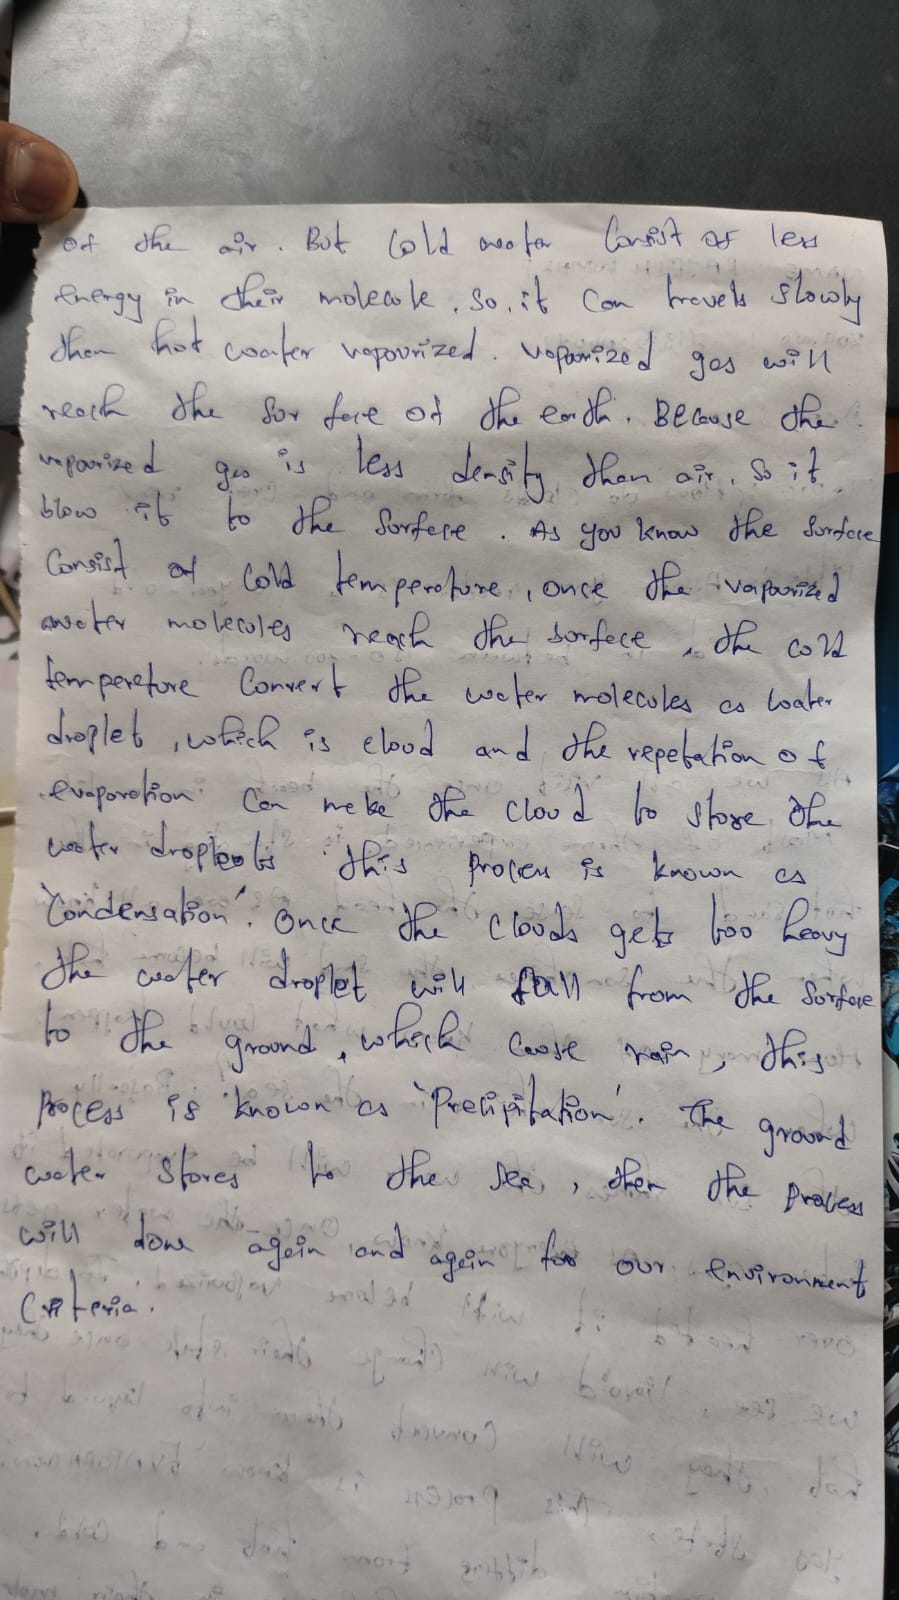 of the air. But Cold water Consist of less
energy in their molecule. So, it Can travels slowly
then hot water vapourized. vaparized gas will
reach the Surface of the earth. Because the
vapourized gas is less density than air. So it
blow it to the Surface. As you know the Surface
Consist of Cold temperature, once the vapourized
water molecules reach the surface, the cold
temperature Convert the water molecules as water
droplet, which is cloud and the repetation of
evaporation Can make the cloud to store the
water droplets this process is known as
'Condensation'. Once the clouds gets too heavy
the water droplet will fall from the Surface
to the ground, which cause rain, this
Process is known as 'Precipitation'. The ground
water stores to the sea, then the process
will done again and again for our environment
Criteria.